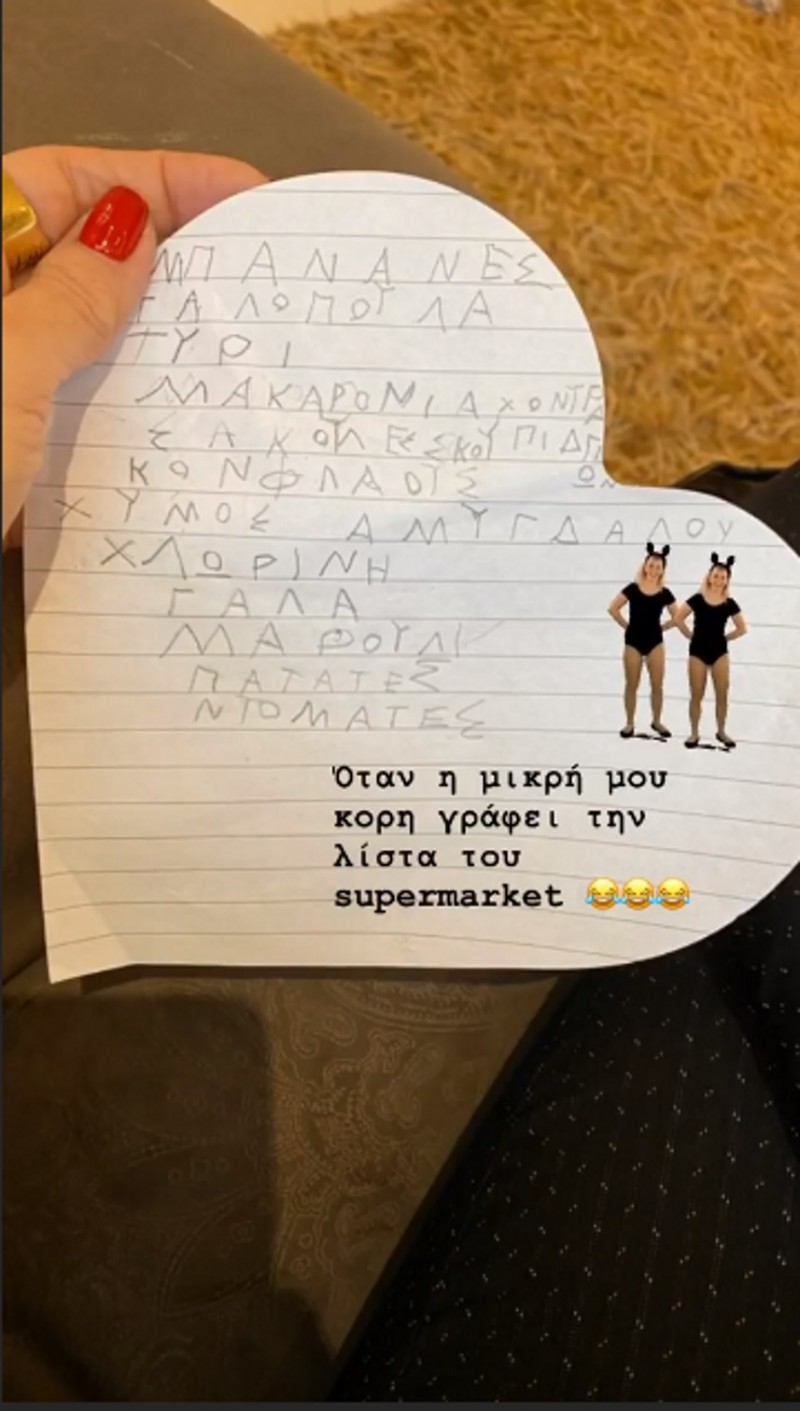 ΜΠΑΝΑΝΕΣ
ΓΑΛΟΠΟΥΛΑ
ΤΥΡΙ
ΜΑΚΑΡΟΝΙΑ ΧΟΝΤΡΑ
ΣΑΚΟΥΛΕΣ ΣΚΟΥΠΙΔΙΩΝ
ΚΟΝΦΛΑΟΥΣ
ΧΥΜΟΣ ΑΜΥΓΔΑΛΟΥ
ΧΛΩΡΙΝΗ
ΓΑΛΑ
ΜΑΡΟΥΛΙ
ΠΑΤΑΤΕΣ
ΝΤΟΜΑΤΕΣ
Όταν η μικρή μου
κορη γράφει την
λίστα του
supermarket 😂😂😂